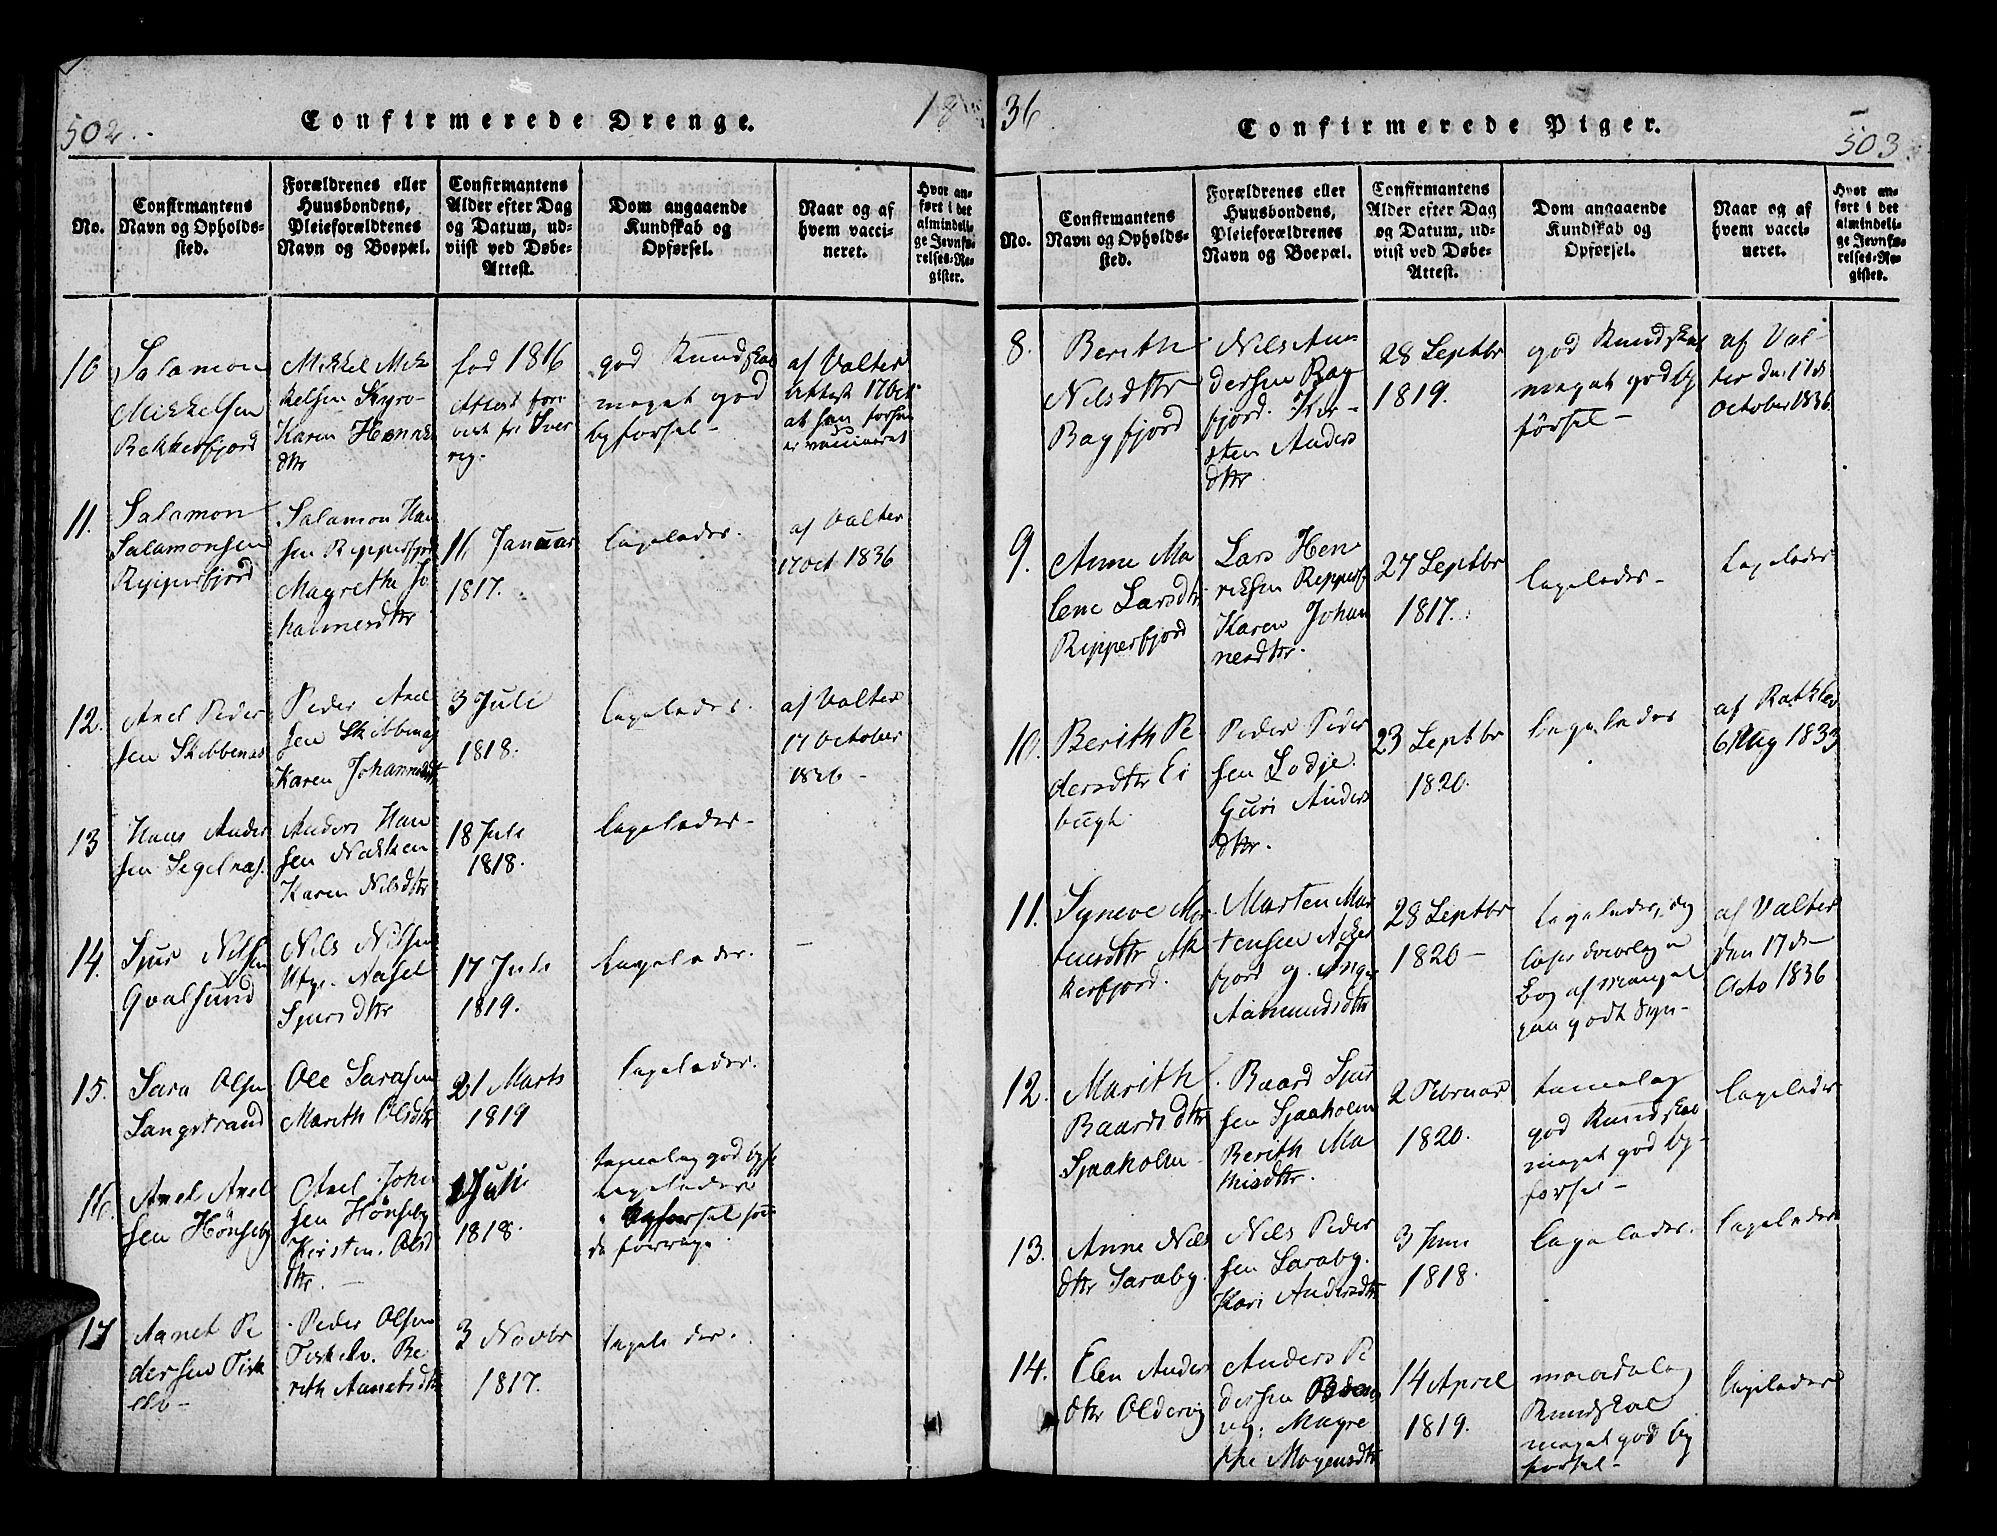 502.
Confirmerede Drenge.
18
No.
Confirmantens
Navn og Opholds-
sted.
Forældrenes eller
Huusbondens,
Pleieforældrenes
Navn og Boepæl.
Confirmantens
Alder efter Dag
og Datum, ud-
viist ved Døbe-
Attest.
Dom angaaende
Kundskab og
Opførsel.
Naar og af
hvem vacci-
neret.
Hvor an-
ført i det
almindeli-
ge Jevnfø-
relses-Re-
gister.
10
Salamon
Mikkelsen
Rekkerfjord
Mikkel Mik
kelsen Kyrø-
Karen Henne
dttr
fød 1816
Attest
god Kundskab
meget god
Opførsel-
af Valter
Attest 17 Oct
at han
er vaccineret
11.
Salamon
Salamonsen
Ripperfjord
Salamon Han
sen Ripperfjord
Magrethe Jo
hannesdttr
11 Januar
1817.
ligeledes.
af Valter
17 Oct 1836
12.
Axel Peder
sen Skibbenæs
Peder Axel
sen Skibbenæs
Karen Johannesdtr
3 Juli
1818.
ligeledes.
af Valter
17 October
1836
13
Hans Ander
sen Segelnæs.
Anders Han
sen Nakken
Karen Nilsdttr
18 Juli
1818.
ligeledes-
14.
Sjur Nilsen
Qvalsund
Nils Nilsen
Sjursdttr
17 Juli
1819.
ligeledes.
15.
Sara Olsen
Langstrand
Ole Sarasen
Marith Olsdttr
21 Marts
1819
ligeledes.
16.
Axel Axel
sen Hönseby
Axel John
sen Hönseby
Kirsten Olsd
ttr.
Juli
1818.
temelig god
ligeledes
17
Aanet Pe
dersen Fisk
elv-
Peder Olsen
Fiskelv. Be
reth Aanetsdttr
3 Novbr
1817.
ligeledes.
36
Confirmerede Piger.
503.
No.
Confirmantens
Navn og Opholds-
sted.
Forældrenes eller
Huusbondens,
Pleieforældrenes
Navn og Boepæl.
Confirmantens
Alder efter Dag
og Datum, ud-
viist ved Døbe-
Attest.
Dom angaaende
Kundskab og
Opførsel.
Naar og af
hvem vacci-
neret.
Hvor an-
ført i det
almindeli-
ge Jevnfø-
relses-Re-
gister.
8.
Berith
Nilsdttr
Bagfjord
Nils An-
dersen Bag
fjord. Kir-
sten Anders
dttr.
28 Septbr
1819.
god Kundskab
meget god Op
førsel-
af Val-
ter den 17de
October 1836
9.
Anne Ma
lene Larsdttr
Ripperfjord
Lars Hen
riksen Ripperfj
Karen Johan
nesdttr.
27 Septbr
1817.
ligeledes-
ligeledes
10.
Berith Pe
dersdttr Ei
bugt.
Peder Peder
sen Lodje.
Guri Anders
dttr.
23 Septbr
1820.
ligeledes
af Rathke
6 Aug 1833
11.
Syneve Mor
tensdttr Ak
kerfjord.
Morten Mor
tensen Akker
fjord og Inger
Aamundsdttr
28 Septbr
1820-
ligeledes, dog
læser daarlig i
Bog af Mangel
paa godt Syn-
af Valter
den 17de
Octo 1836
12.
Marith
Baardsdttr
Sjaaholm
Baard Sjur
sen Sjaaholm
Berith Ma
thisdttr.
2 Februar
1820.
temelig
god Kundskab
meget god Op-
førsel-
ligeledes
13.
Anne Nils
dttr Saraby.
Nils Peder
sen Saraby.
Kari Andersdttr
3 Juni
1818.
ligeledes.
ligeledes
14.
Elen Anders
dttr Oldervig
Anders Pe
dersen
vig; Magre
the Mogensdttr
14 April
1819.
maadelig
Kundskab
meget god Op
førsel-
ligeledes